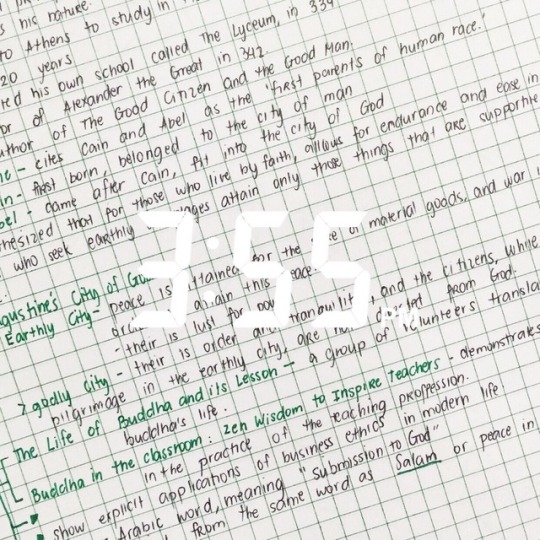 s his nature.
to Athens to study in
20 years
ed his own school called The Lyceum, in 334
or of Alexander the Great in 342.
uthor of The Good Citizen and the Good Man.
cites Cain and Abel as the "first parents of human race."
in - first born, belonged to the city of man
bel - came after Cain, fit into the city of God
hesized that for those who live by faith, alllows for endurance and ease in
who seek earthly ages attain only those things that are supportive
3:55 PM
gustine's City of
Earthly City - peace is attained for the of material goods, and war
attain this peace
- their is lust for
> godly City - their is order and tranquility and the citizens, while
pilgrimage in the earthly city, are not from God.
The Life of Buddha and its Lesson - a group of volunteers transla
buddha's life.
Buddha in the classroom: zen Wisdom to Inspire Teachers - demonstrates
in the practice of the teaching proffession.
show explicit applications of business ethics in modern life
Arabic word, meaning "submission to God"
from the same word as Salam or peace in